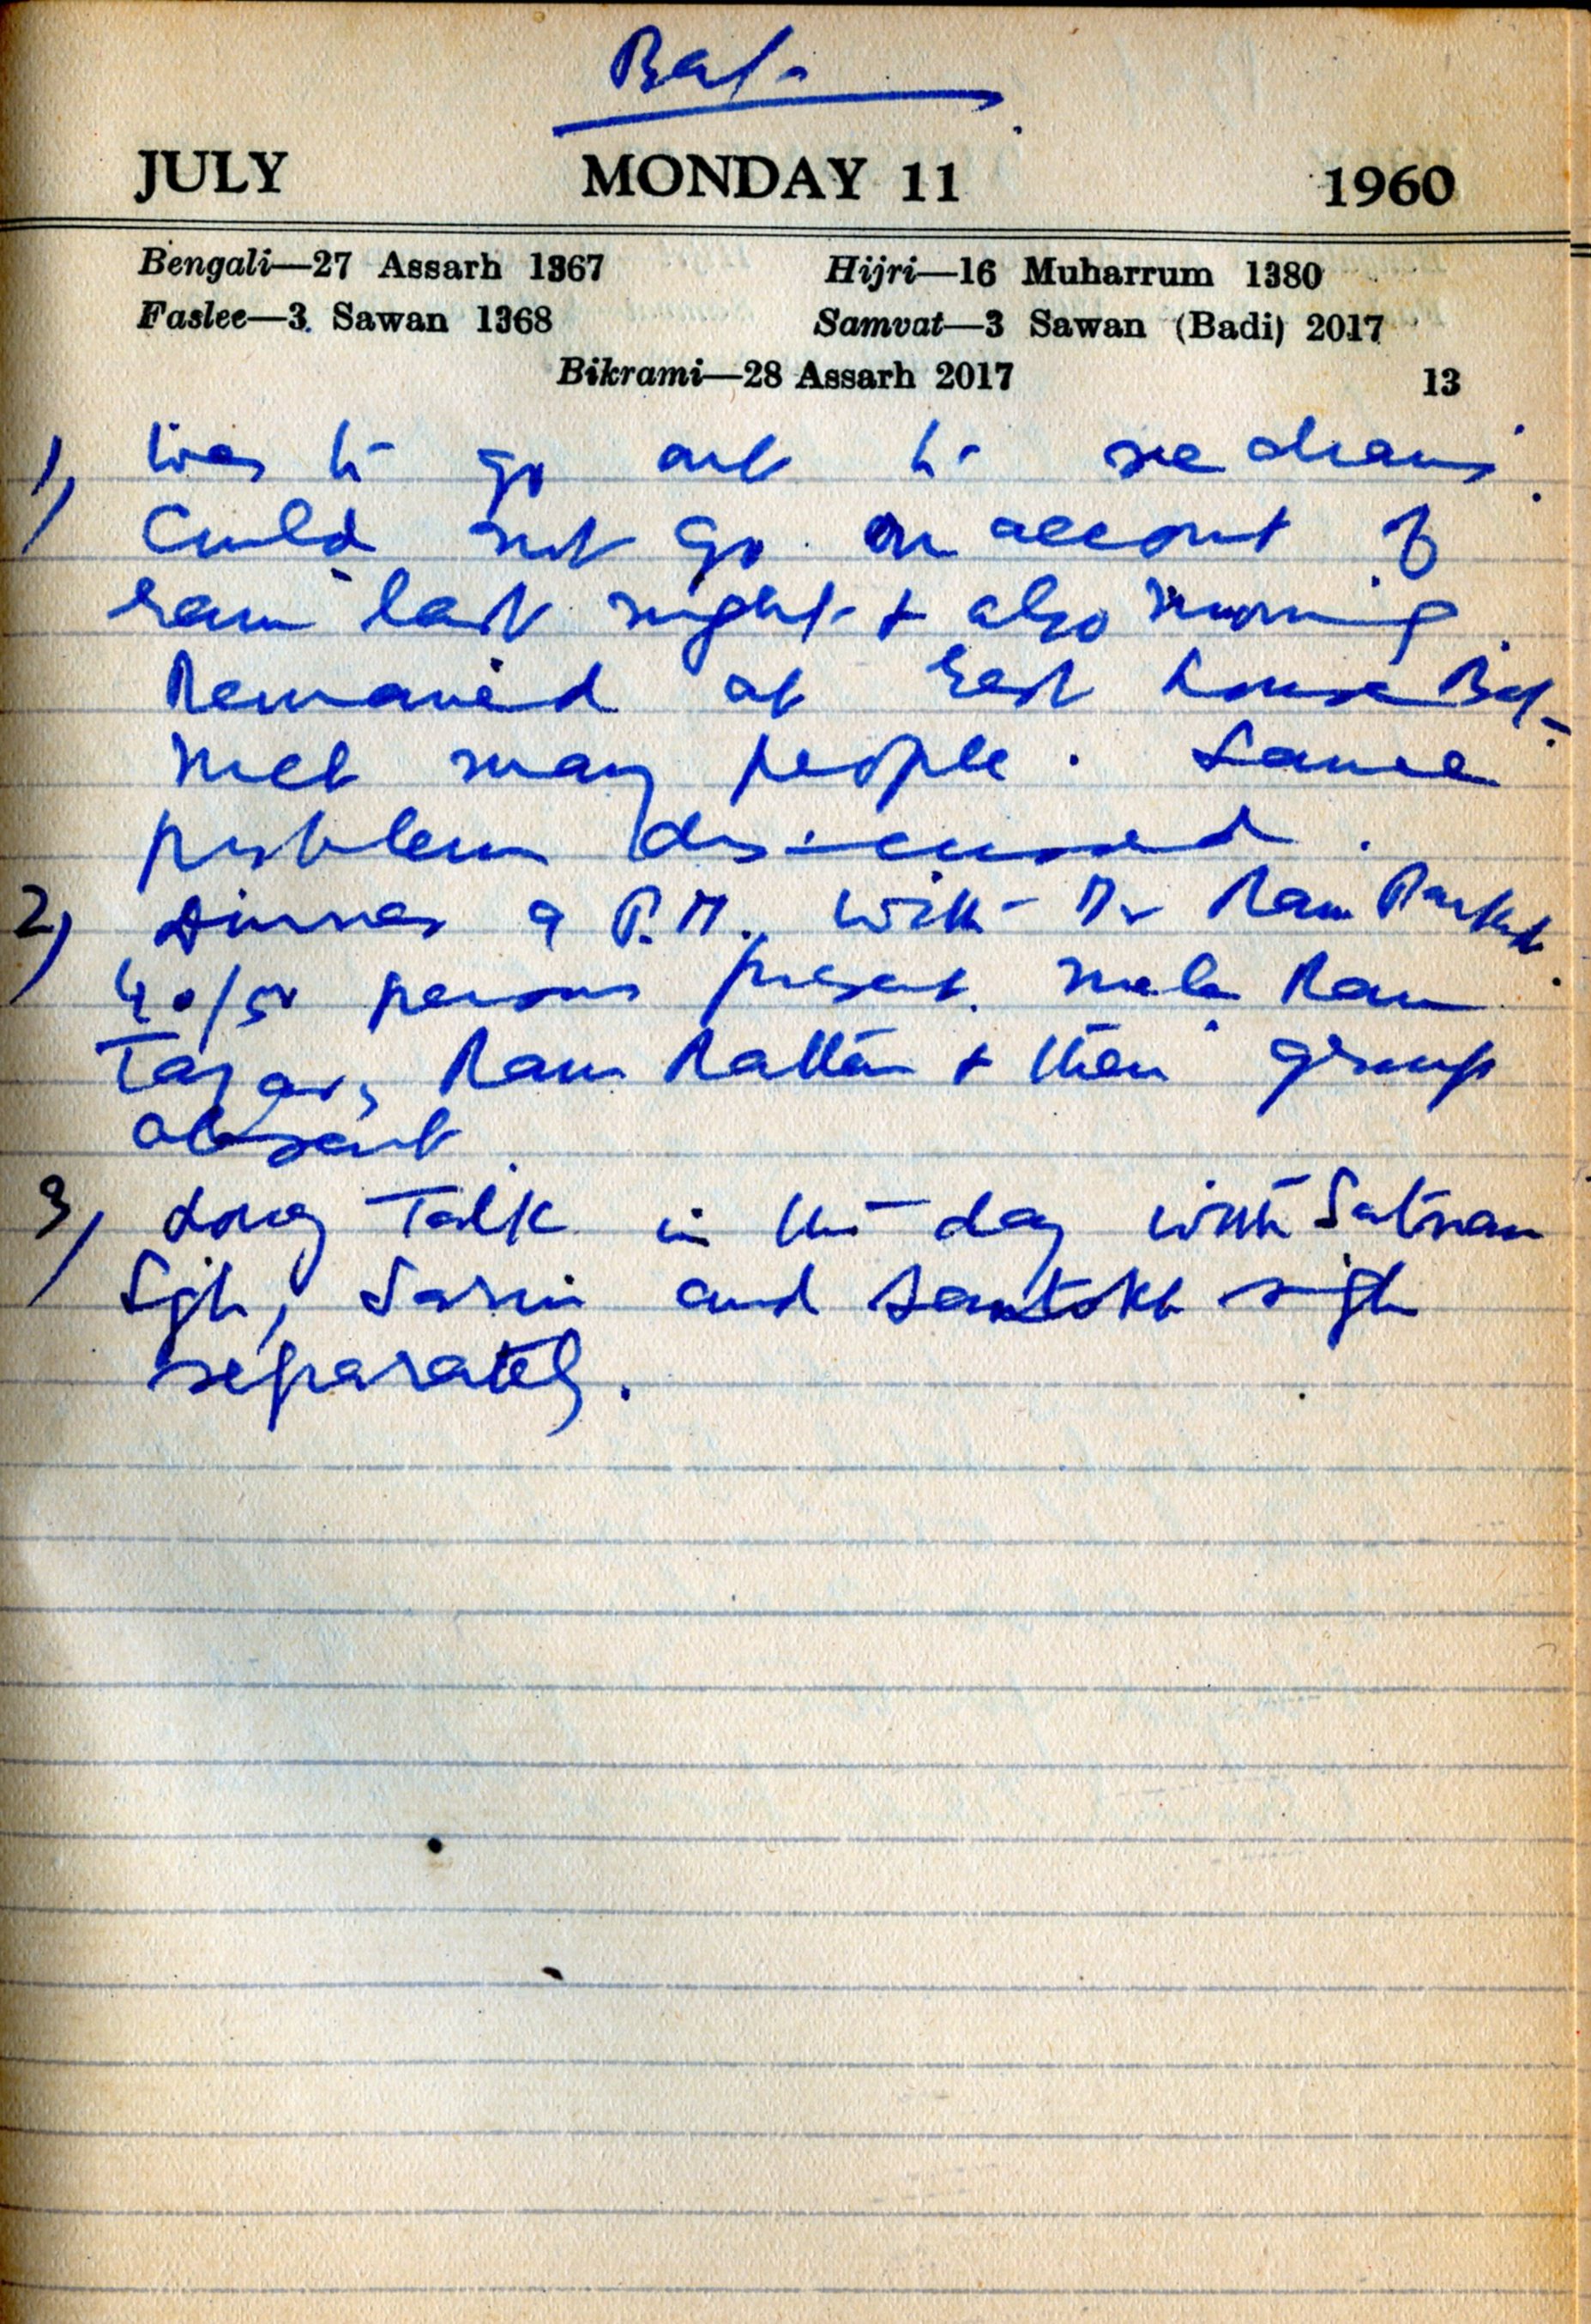 Bat.
JULY MONDAY 11 1960
Bengali—27 Assarh 1367 Hijri—16 Muharrum 1380
Faslee—3 Sawan 1368 Samvat—3 Sawan (Badi) 2017
Bikrami—28 Assarh 2017 13
1) Was to go out to see drains.
Could not go on account of
rain last night & also morning.
Remained at rest house Bat.
Met many people.
problem discussed.
2) Dinner 9 P.M. with Dr Ram
40/50 persons present. Mela Ram
Ram Rattan & their group
absent.
3) Long talk in the day with Satnam
Sgh, Sarin and Santokh Sigh
separately.